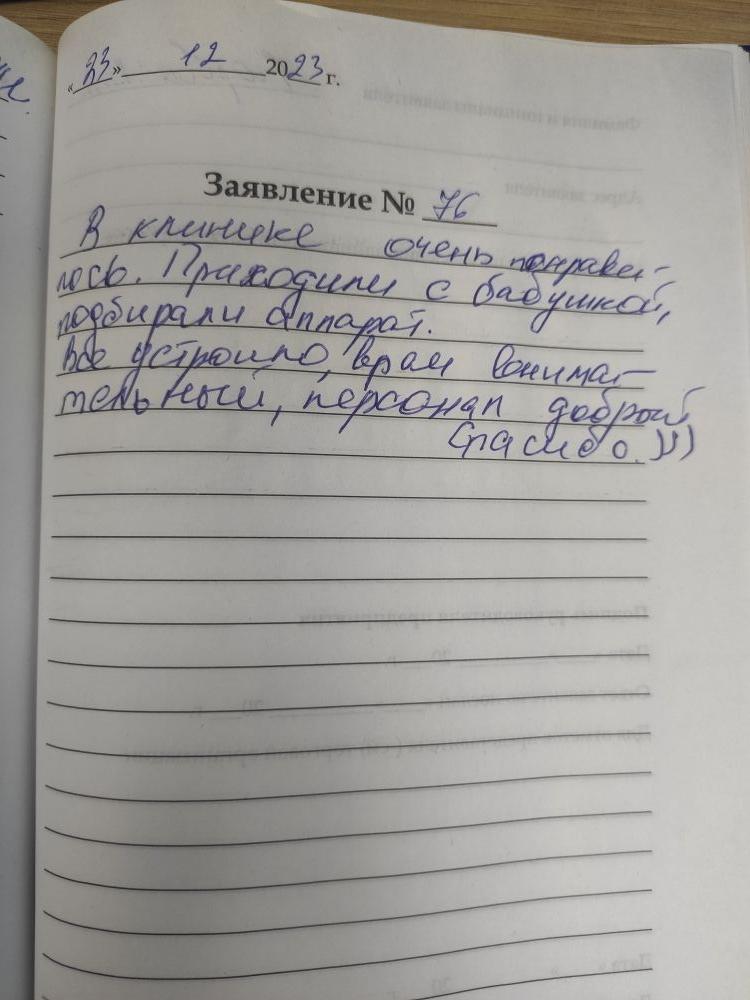 «23» 12 2023 г.
Заявление № 76
В клинике очень понрави-
лось. Приходили с бабушкой,
подбирали аппарат.
Все устроило, врач внимат-
тельный, персонал добрый
Спасибо.)))